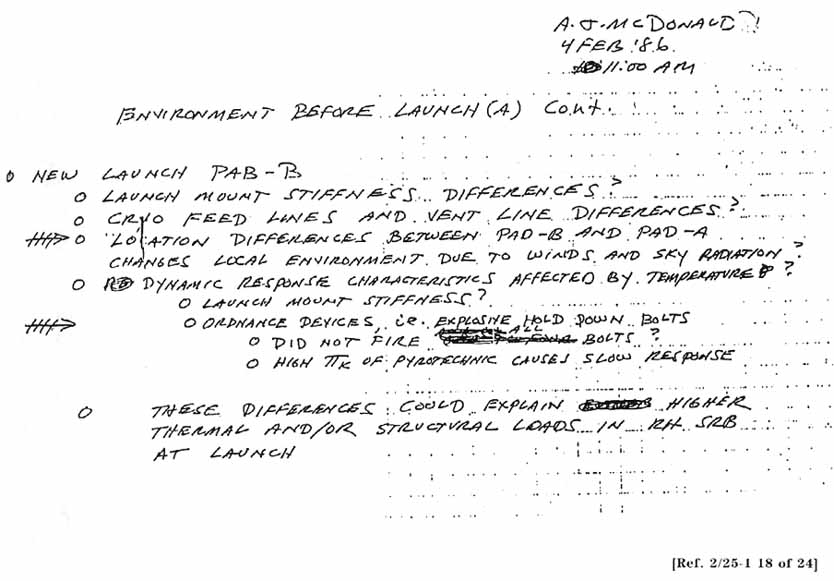 A. J. MCDONALD
4 FEB '86
11:00 AM
ENVIRONMENT BEFORE LAUNCH (A) Cont.
O NEW LAUNCH PAB-B
O LAUNCH MOUNT STIFFNESS DIFFERENCES?
O CRYO FEED LINES AND VENT LINE DIFFERENCES?
O LOCATION DIFFERENCES BETWEEN PAD-B AND PAD-A
CHANGES LOCAL ENVIRONMENT DUE TO WINDS AND SKY RADIATION?
O DYNAMIC RESPONSE CHARACTERISTICS AFFECTED BY TEMPERATURE?
O LAUNCH MOUNT STIFFNESS?
O ORDNANCE DEVICES, i.e. EXPLOSIVE HOLD DOWN BOLTS
O DID NOT FIRE ALL BOLTS?
O HIGH πK OF PYROTECHNIC CAUSES SLOW RESPONSE
O THESE DIFFERENCES COULD EXPLAIN HIGHER
THERMAL AND/OR STRUCTURAL LOADS IN RH SRB
AT LAUNCH
[Ref. 2/25-1 18 of 24]